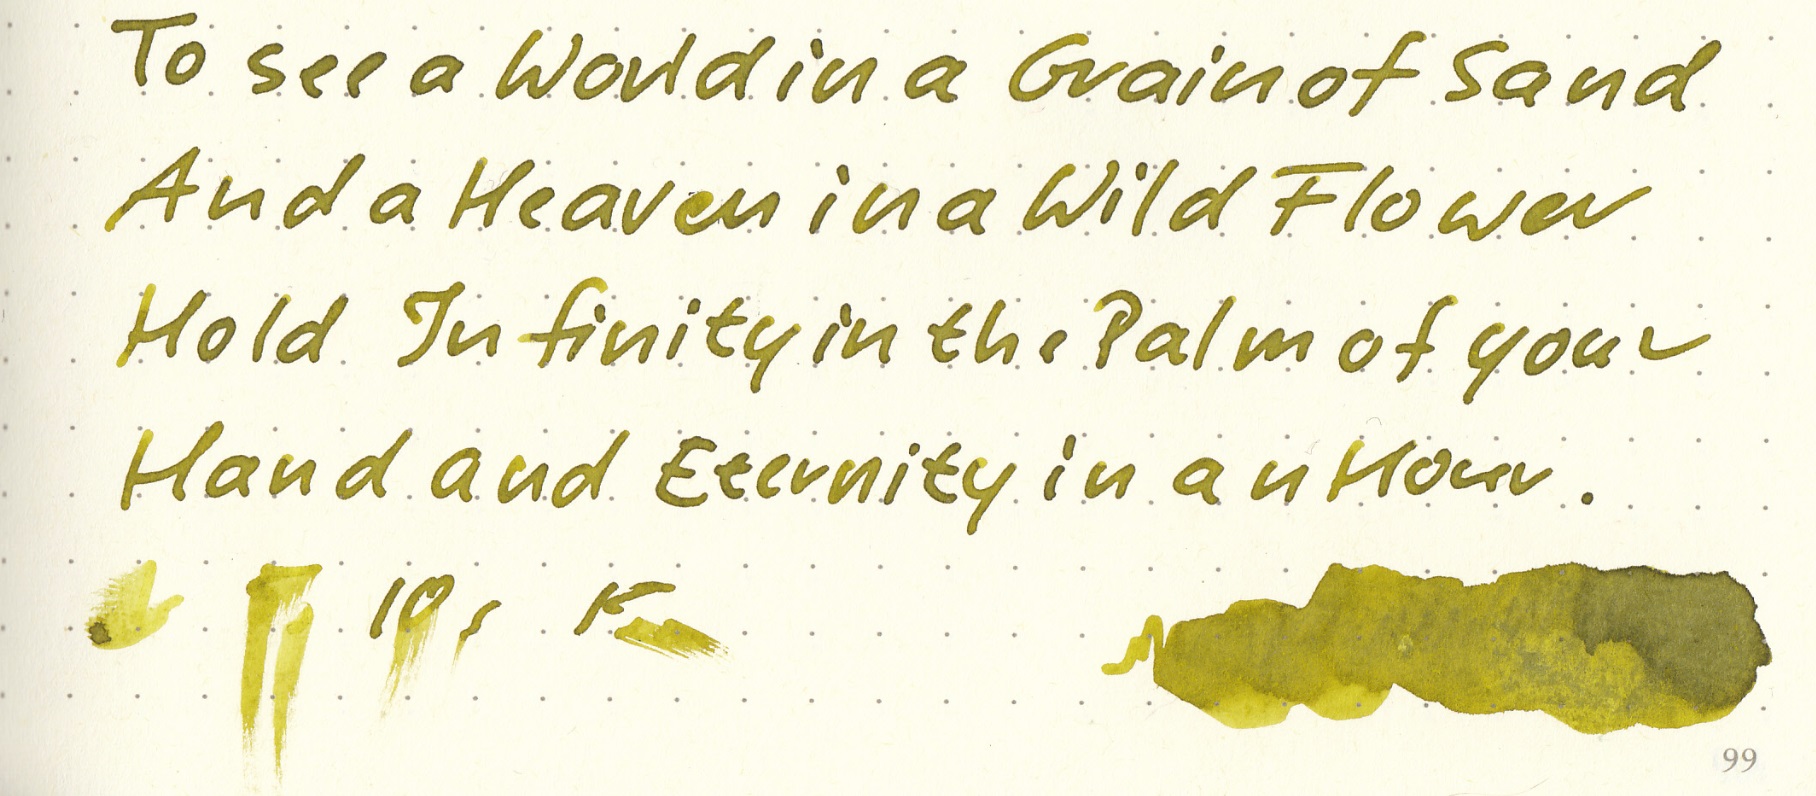 To see a World in a Grain of Sand
And a Heaven in a Wild Flower
Hold Infinity in the Palm of your
Hand and Eternity in an Hour.
10s
99